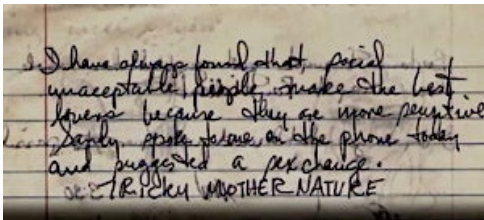 I have always found that social
unaceptable people make the best
lovers because they are more sensitive
spoke to me on the phone today
and suggested a sex change.
TRICKY MOTHER NATURE